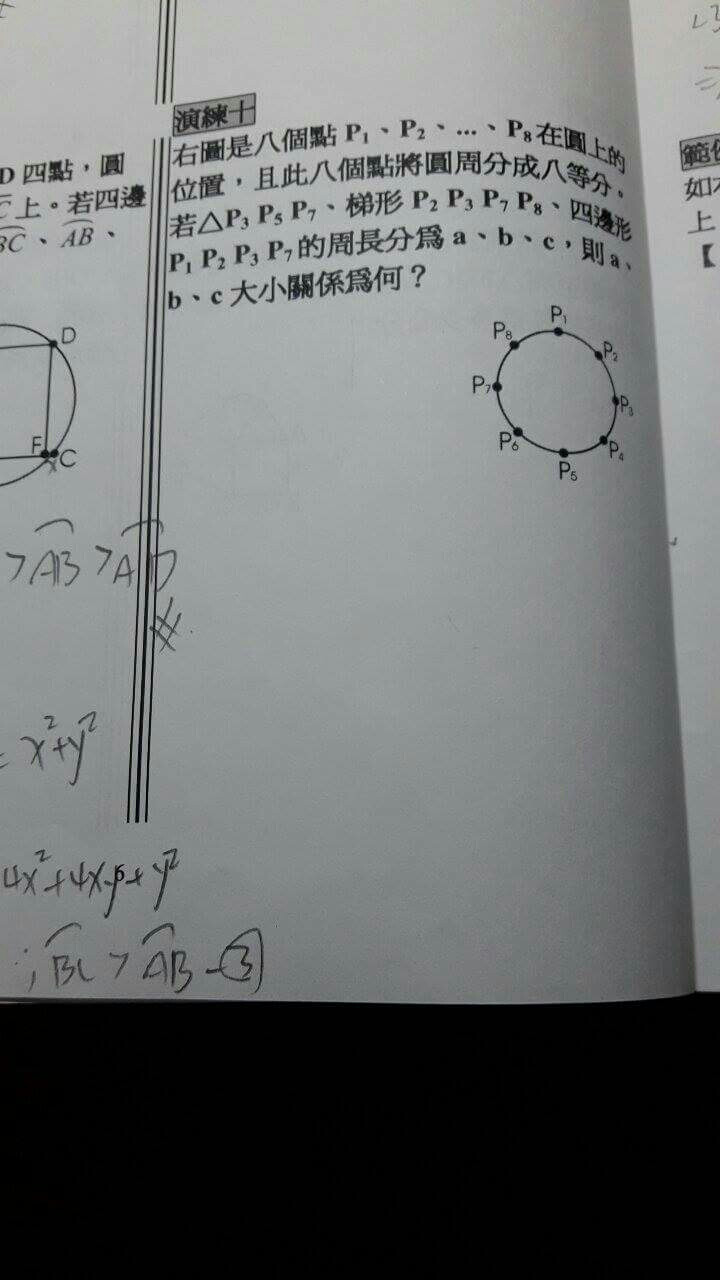 D 四點，圓
上。若四邊
BC、AB、
D
F
C
>AB >AD
= x²+y²
4x²+4xy+y²
∴ BC > AB -③
演練十
右圖是八個點 P₁、P₂、…、P₈ 在圓上的
位置，且此八個點將圓周分成八等分。
若△P₃ P₅ P₇、梯形 P₂ P₃ P₇ P₈、四邊形
P₁ P₂ P₃ P₇ 的周長分為 a、b、c，則 a、
b、c 大小關係為何？
P₁
P₈
P₂
P₇
P₃
P₆
P₄
P₅
如
上
【